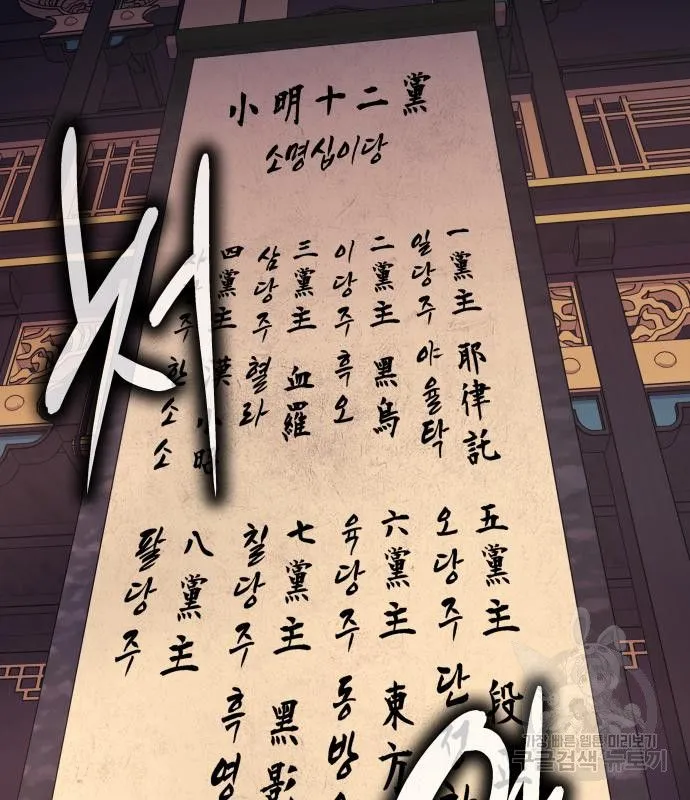 小明十二黨
소명십이당
一黨主 耶律託
일당주 야율탁
二黨主 黑烏
이당주 흑오
三黨主 血羅
삼당주 혈라
四黨主 漢
주 한소소
五黨主 段
오당주 단
六黨主 東方
육당주 동방
七黨主 黑影
칠당주 흑영
八黨主
팔당주
가장 빠른 웹툰 미리보기
구글검색 뉴토끼